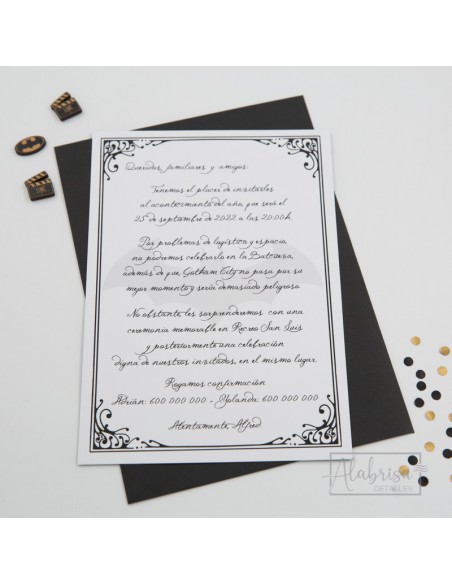 Queridos, familiares y amigos:
Tenemos el placer de invitarles
al acontecimiento del año, que será el
25 de septiembre de 2022 a las 20:00h.
Por problemas de logística y espacio,
no podremos celebrarlo en la Batcueva,
además de que Gotham City no pasa por su
mejor momento y sería demasiado peligroso.
No obstante, les sorprenderemos con una
ceremonia memorable en Recreo San Luis
y posteriormente una celebración
digna de nuestros invitados, en el mismo lugar.
Rogamos confirmación
Adrián: 600 000 000 - Yolanda: 600 000 000
Atentamente, Alfred
Alabrisa
DETALLES